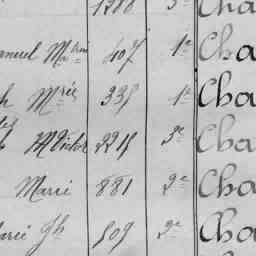 1288 3e Cha
anuel Mathieu 407 1e Cha
h Marie 335 1e Cha
Victor 2215 3e Cha
Marie 881 2e Cha
arie Jh 507 2e Cha